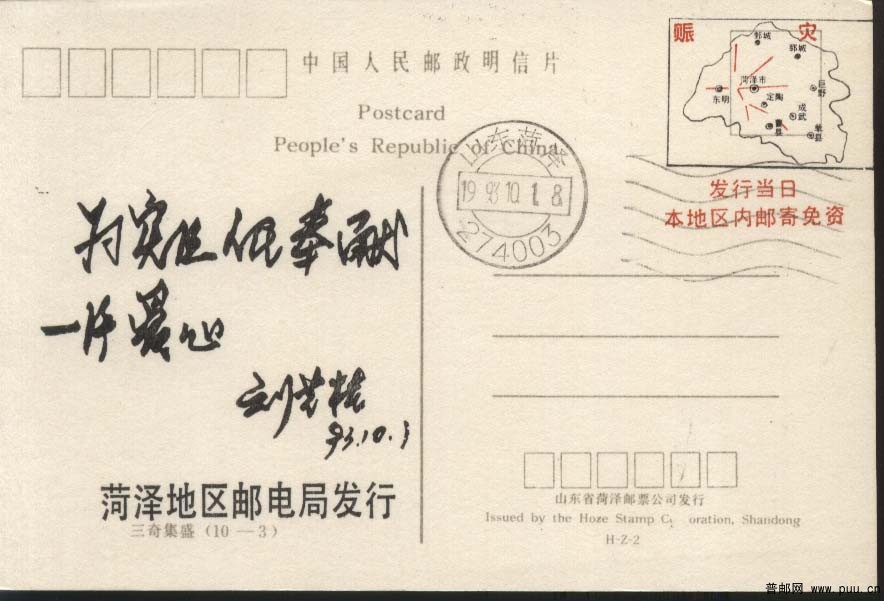 中国人民邮政明信片
Postcard
People's Republic of China
赈 灾
鄄城
郓城
菏泽市
东明
巨野
定陶
成武
曹县
单县
发行当日
本地区内邮寄免资
山东菏泽
1993.10.1.8
274003
奉献
一片爱心
刘
93.10.1
菏泽地区邮电局发行
三奇集盛(10—3)
山东省菏泽邮票公司发行
Issued by the Hoze Stamp C oration, Shandong
H-Z-2
普邮网 www.puu.cn